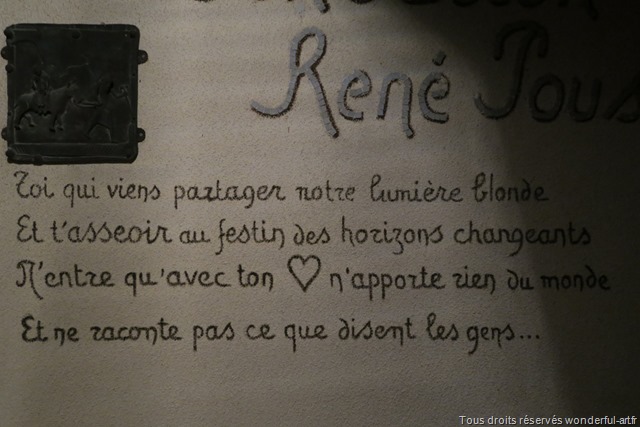 René Pous
Toi qui viens partager notre lumière blonde
Et t'asseoir au festin des horizons changeants
N'entre qu'avec ton ♡ n'apporte rien du monde
Et ne raconte pas ce que disent les gens...
Tous droits réservés wonderful-art.fr